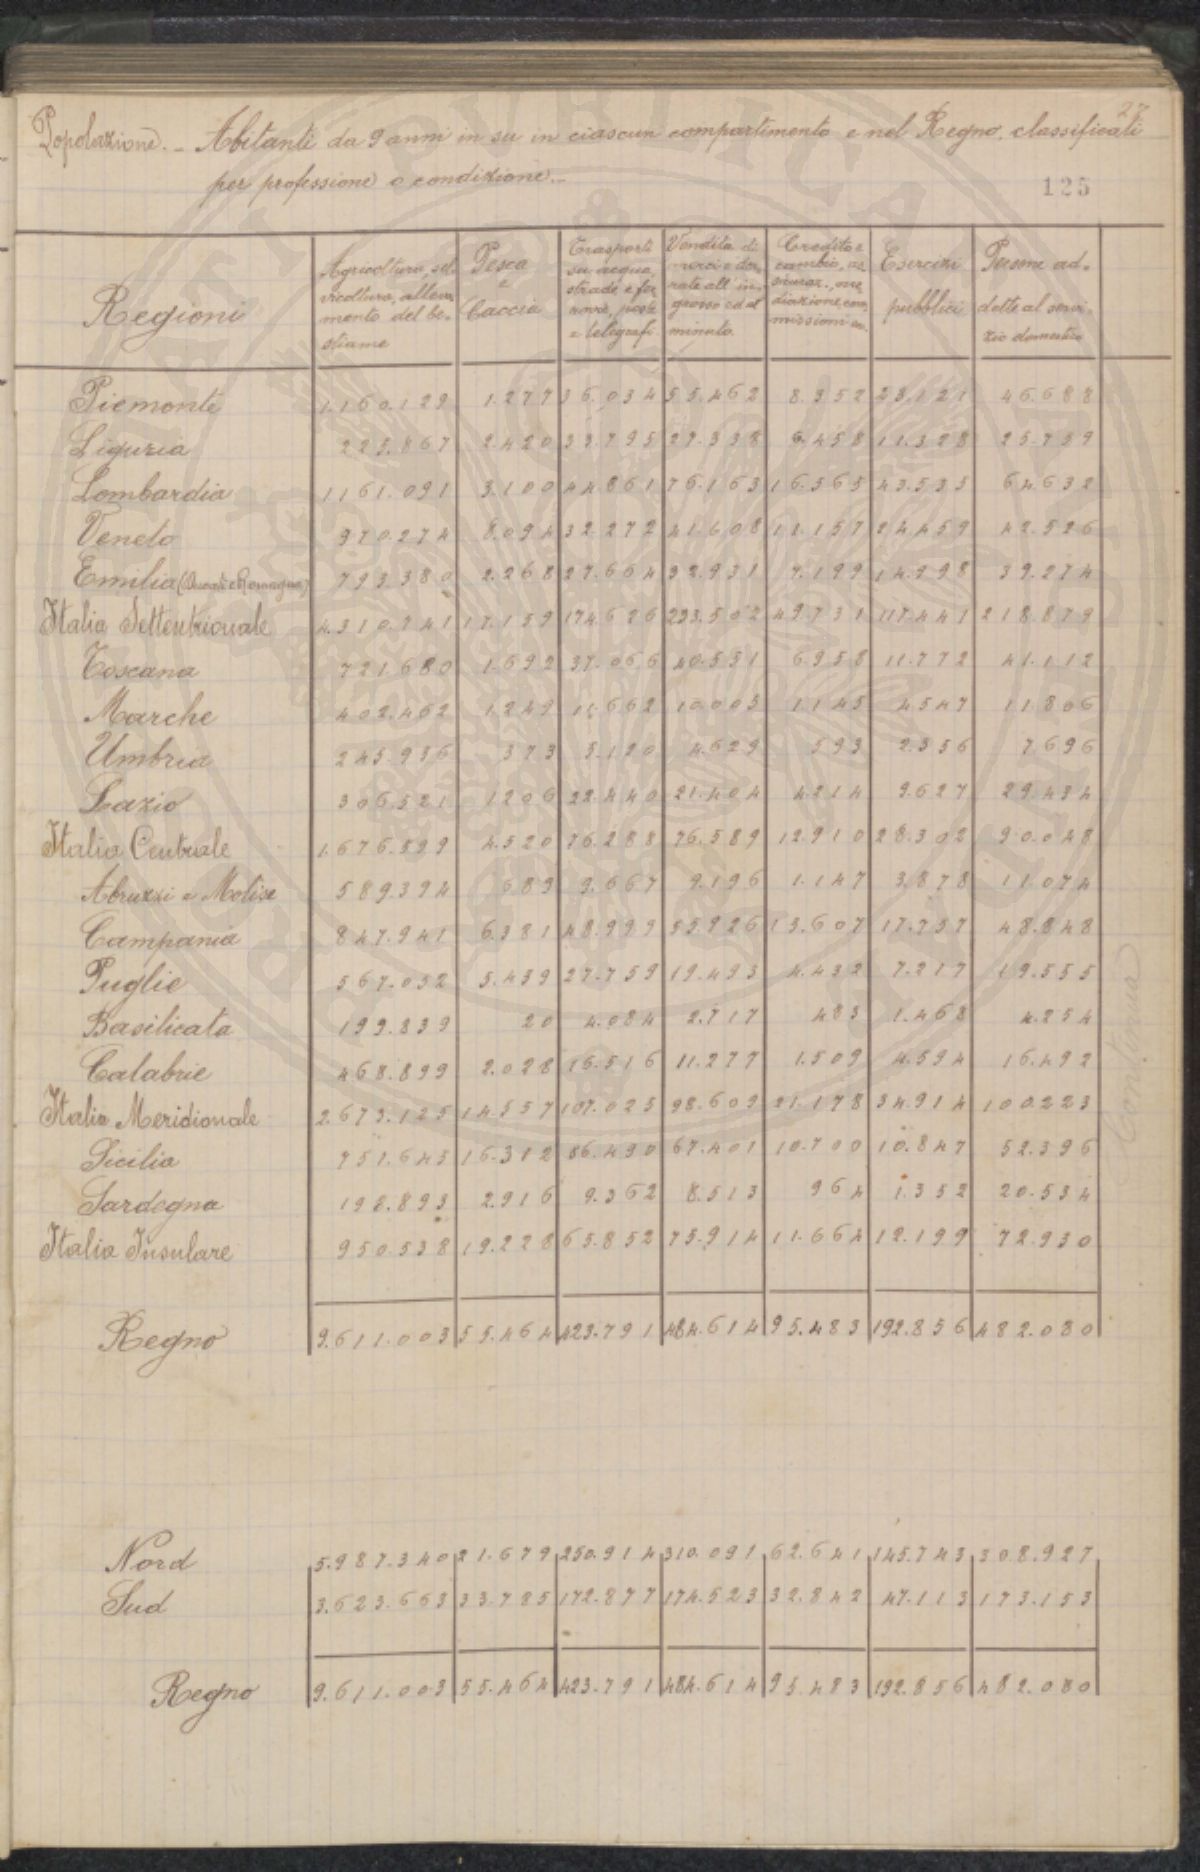 27
Popolazione. - Abitanti da 9 anni in su in ciascun compartimento e nel Regno, classificati
per professione o condizione.-
125
Regioni | Agricoltura, sel- vicoltura, alleva- mento del be- stiame | Pesca e Caccia | Trasporti su acqua, strade e fer- rovie, poste e telegrafi | Vendita di merci e der- rate all'in- grosso ed al minuto | Credito e cambio, as- sicuraz., me- diazione, com- missioni ec. | Esercizi pubblici | Persone ad- dette al servi- zio domestico
Piemonte 1.160.129 1.277 36.034 55.462 8.352 23.121 46.688
Liguria 225.867 2.420 33.795 27.338 6.458 11.328 25.759
Lombardia 1161.091 3.100 44.861 76.163 16.565 43.535 64.632
Veneto 970.274 8.094 32.272 41.608 11.157 24.459 42.526
Emilia (Ducati e Romagna) 793.380 2.268 27.664 32.931 7.199 14.998 39.274
Italia Settentrionale 4.310.741 17.159 174.626 233.502 49.731 117.441 218.879
Toscana 721.680 1.692 37.066 40.551 6.958 11.772 41.112
Marche 402.462 1.249 11.662 10.005 1.145 4.547 11.806
Umbria 245.936 373 5.120 4.629 593 2.356 7.696
Lazio 306.521 1206 22.440 21.404 4.214 9.627 29.434
Italia Centrale 1.676.599 4.520 76.288 76.589 12.910 28.302 90.048
Abruzzi e Molise 589.394 689 9.667 9.196 1.147 3.878 11.074
Campania 847.941 6.381 48.999 55.926 13.607 17.757 48.848
Puglie 567.052 5.439 27.759 19.493 4.432 7.217 19.555
Basilicata 199.839 20 4.084 2.717 483 1.468 4.254
Calabrie 468.899 2.028 16.516 11.277 1.509 4.594 16.492
Italia Meridionale 2.673.125 14.557 107.025 98.609 21.178 34.914 100.223
Sicilia 751.645 16.312 56.490 67.401 10.700 10.847 52.396
Sardegna 198.893 2.916 9.362 8.513 964 1.352 20.534
Italia Insulare 950.538 19.228 65.852 75.914 11.664 12.199 72.930
Regno 9.611.003 55.464 423.791 484.614 95.483 192.856 482.080
Nord 5.987.340 21.679 250.914 310.091 62.641 145.743 308.927
Sud 3.623.663 33.785 172.877 174.523 32.842 47.113 173.153
Regno 9.611.003 55.464 423.791 484.614 95.483 192.856 482.080
Continua